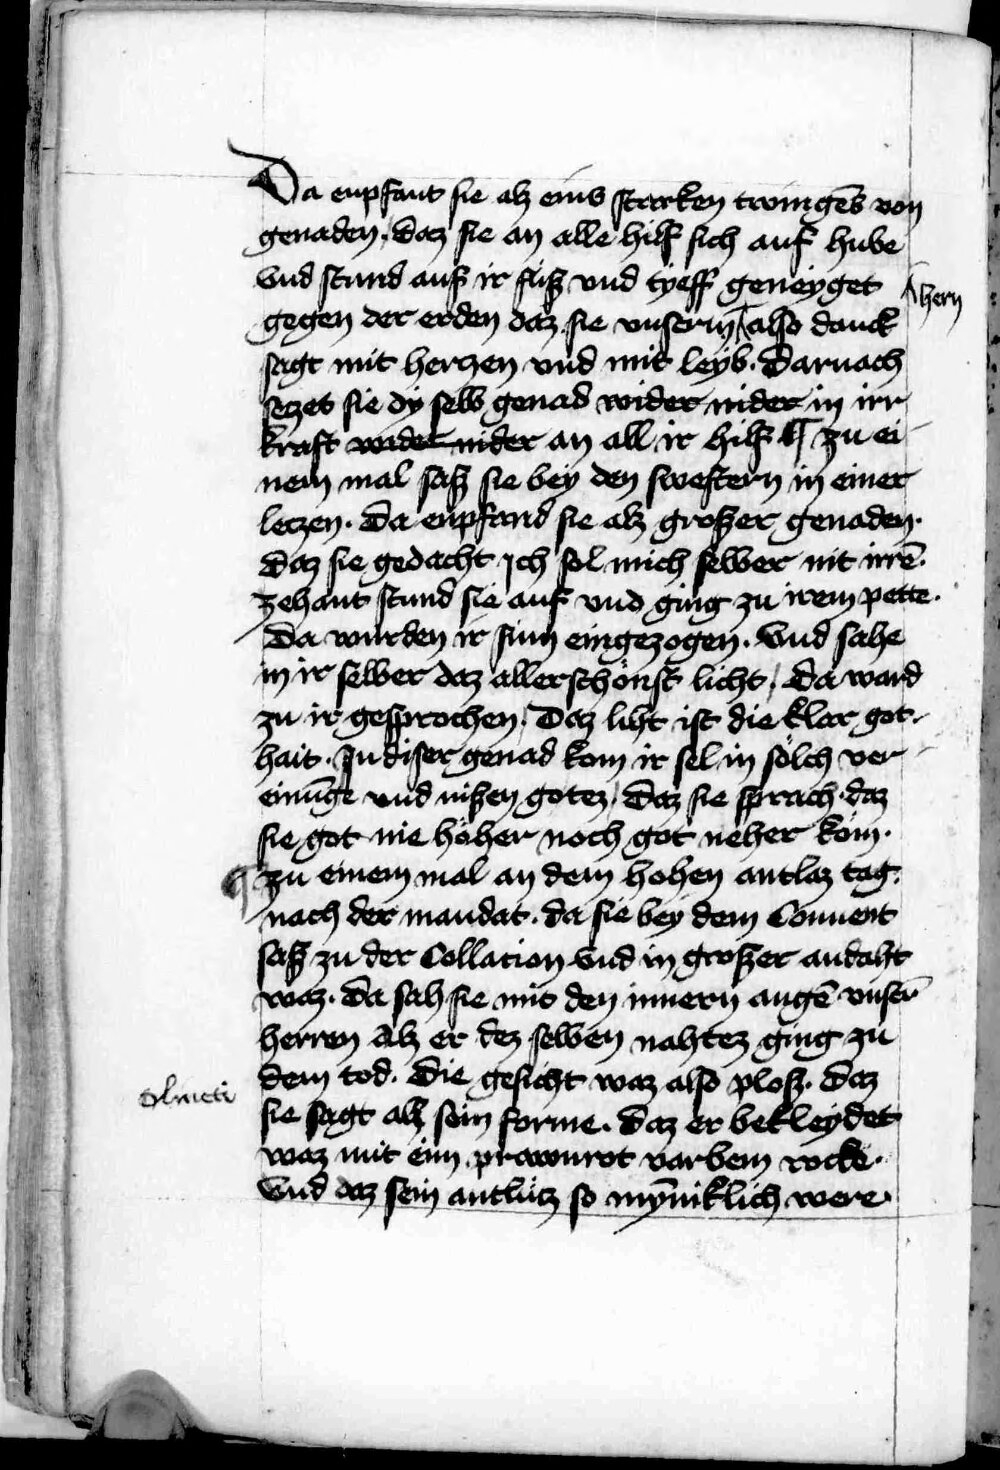 Da enpfant sie alz eins starcken twingēs von
genaden. daz sie an alle hilf sich auf hube
Vnd stund auf ir fuß vnd tyeff geneyget
gegen der erden daz sie vnserm also danck
hern
sagt mit herzen vnd mit leyb. Darnach
setzet sie dy selb genad wider nider in irr
kraft wider nider an all ir hilf ¶ zu ei-
nem mal saß sie bey den swestern in einer
leczen. Da enpfand sie alz großer genaden.
daz sie gedacht ich sol mich selber nit irrē.
zehant stund sie auf vnd ging zu irem pette.
Da wurden ir sinn eingezogen. Vnd sahe
in ir selber daz allerschönst licht, Da ward
zu ir gesprochen, Daz liht ist die klar got-
hait. In diser genad kom ir sel in sölch ver
einūge vnd nißen gotez, Daz sie sprach. daz
sie got nie höher noch got neher kom.
¶ zu einem mal an dem hohen antlaz tag.
nach der mandat. da sie bey dem Conuent
saß zu der Collacion Vnd in großer andaht
waz. Da sah sie mit den innern augē vnserñ
herren Alz er dez selben nahtez ging zu
dem tod. Die gesicht waz also ploß. Daz
sie sagt alz sein forme. Daz er bekleydet
waz mit eim prawnrot varbem rocke.
Vnd daz sein antlütz so mỹniklich were.